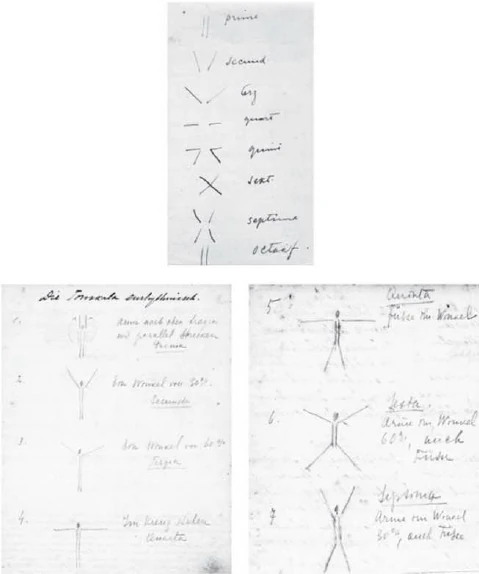 prime
secund
terz
quart
quint
sext.
septime
octaaf.
Die Tonskala eurhythmisch.
1.
Arme nach oben tragen
und parallel strecken
2.
Im Winkel von 30°
Secunda
3.
Im Winkel von 60°
Terza
4.
Im Kreuz
Quarta
5.
Quinta
Füsse im Winkel
6.
Sexta.
Arme im Winkel
60°, auch
Füsse
7
Septima
Arme im Winkel
30°, auch Füsse